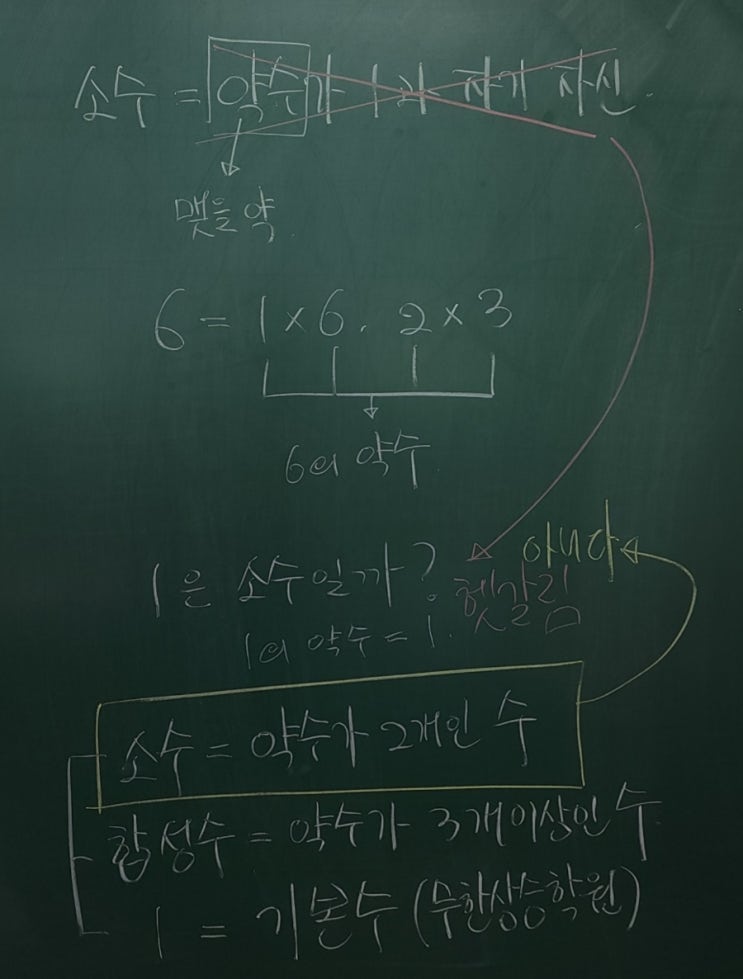 소수 = 약수가 1과 자기 자신.
맺을 약
6 = 1 × 6. 2 × 3
6의 약수
아니다
1은 소수일까? 헷갈림
1의 약수 = 1.
소수 = 약수가 2개인 수
합성수 = 약수가 3개이상인 수
1 = 기본수 (무한생승학원)